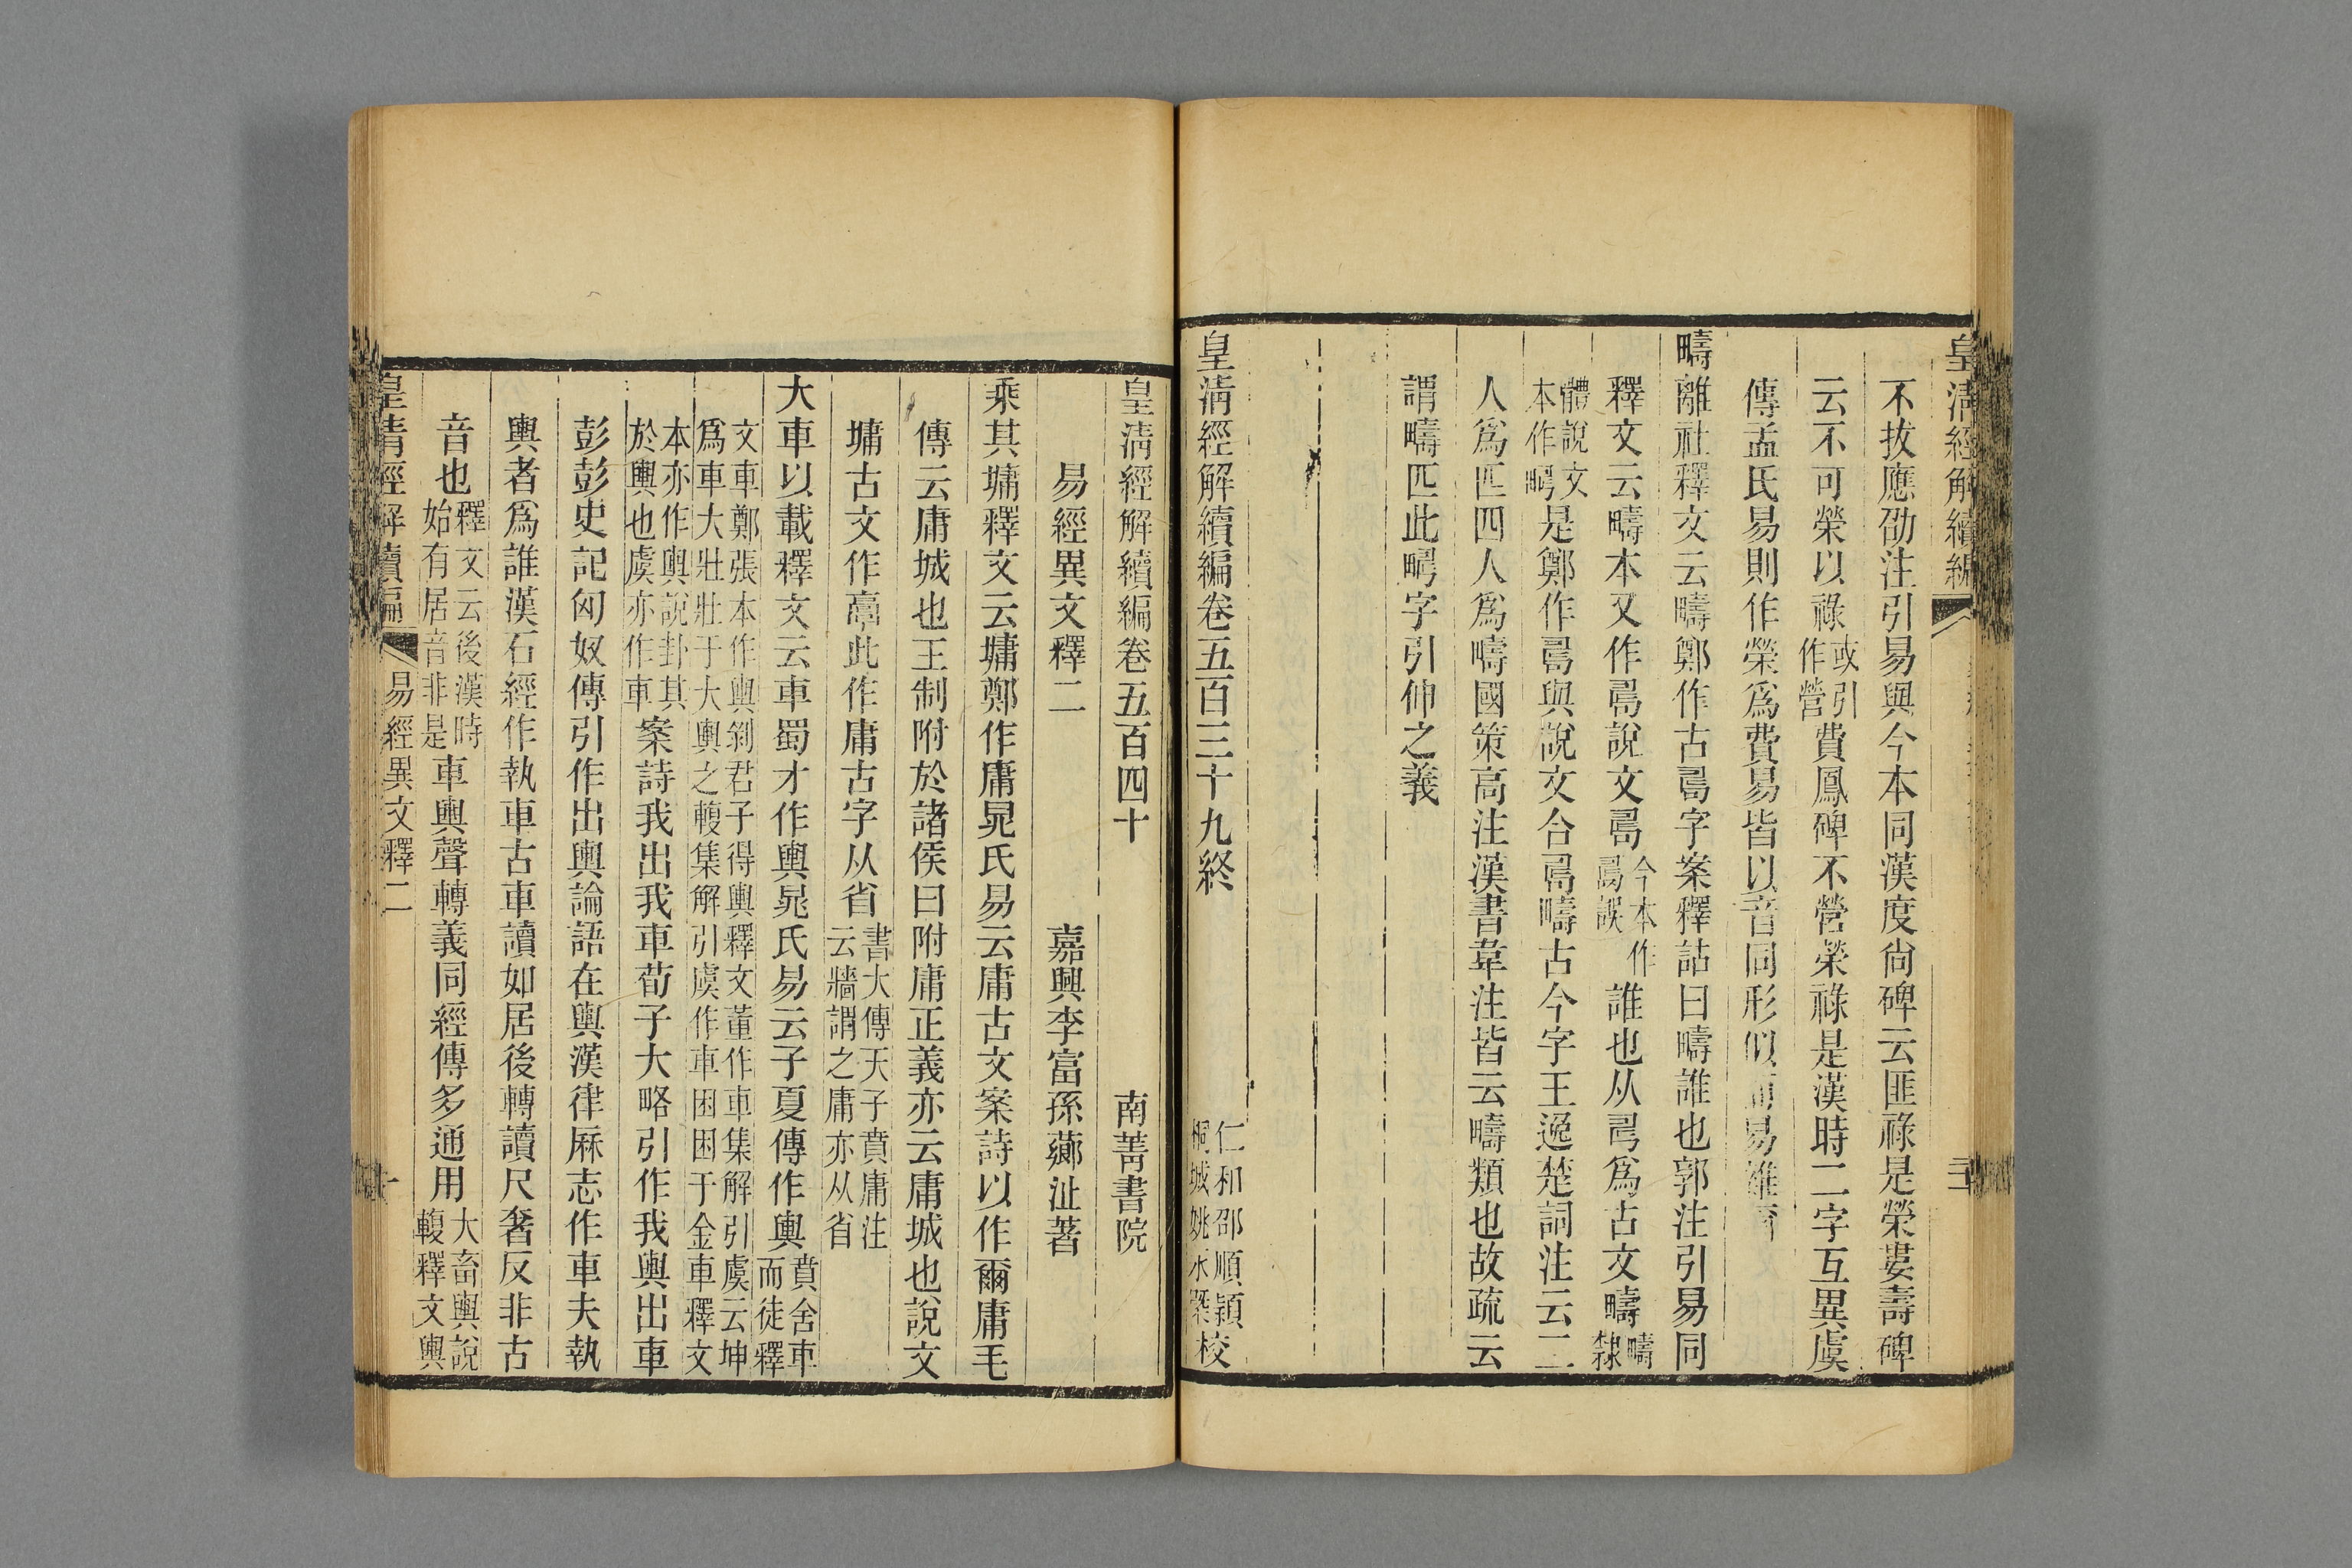 皇清經解續編
不拔應劭注引易與今本同漢度尙碑云匪祿是榮婁壽碑
云不可榮以祿或引作營費鳳碑不營榮祿是漢時二字互異虞
傳孟氏易則作榮爲費易皆以音同形似
疇離祉釋文云疇鄭作古𠷎字案釋詁曰疇誰也郭注引易同
釋文云疇本又作𠷎說文𠷎今本作誤誰也从𠃬爲古文疇疇隸
體說文本作是鄭作𠷎與說文合𠷎疇古今字王逸楚詞注云二
人爲匹四人爲疇國策高注漢書韋注皆云疇類也故疏云
謂疇匹此字引伸之義
皇淸經解續編卷五百三十九終
仁和邵順穎
桐城姚永㮣校
皇淸經解續編卷五百四十
南菁書院
易經異文釋二
嘉興李富孫薌沚著
乘其墉釋文云墉鄭作庸晁氏易云庸古文案詩以作爾庸毛
傳云庸城也王制附於諸侯曰附庸正義亦云庸城也說文
墉古文作𩫖此作庸古字从省書大傳天子賁庸注云牆謂之庸亦从省
大車以載釋文云車蜀才作輿晁氏易云子夏傳作輿賁舍車而徒釋
文車鄭張本作輿剝君子得輿釋文董作車集解引虞云坤爲車大壯壯于大輿之輹集解引虞作車困困于金車釋文
本亦作輿說卦其於輿也虞亦作車案詩我出我車荀子大略引作我輿出車
彭彭史記匈奴傳引作出輿論語在輿漢律厤志作車夫執
輿者爲誰漢石經作執車古車讀如居後轉讀尺奢反非古
音也釋文云後漢時始有居音非是車輿聲轉義同經傳多通用大畜輿說輹釋文輿
皇清經解續編
易經異文釋二
一